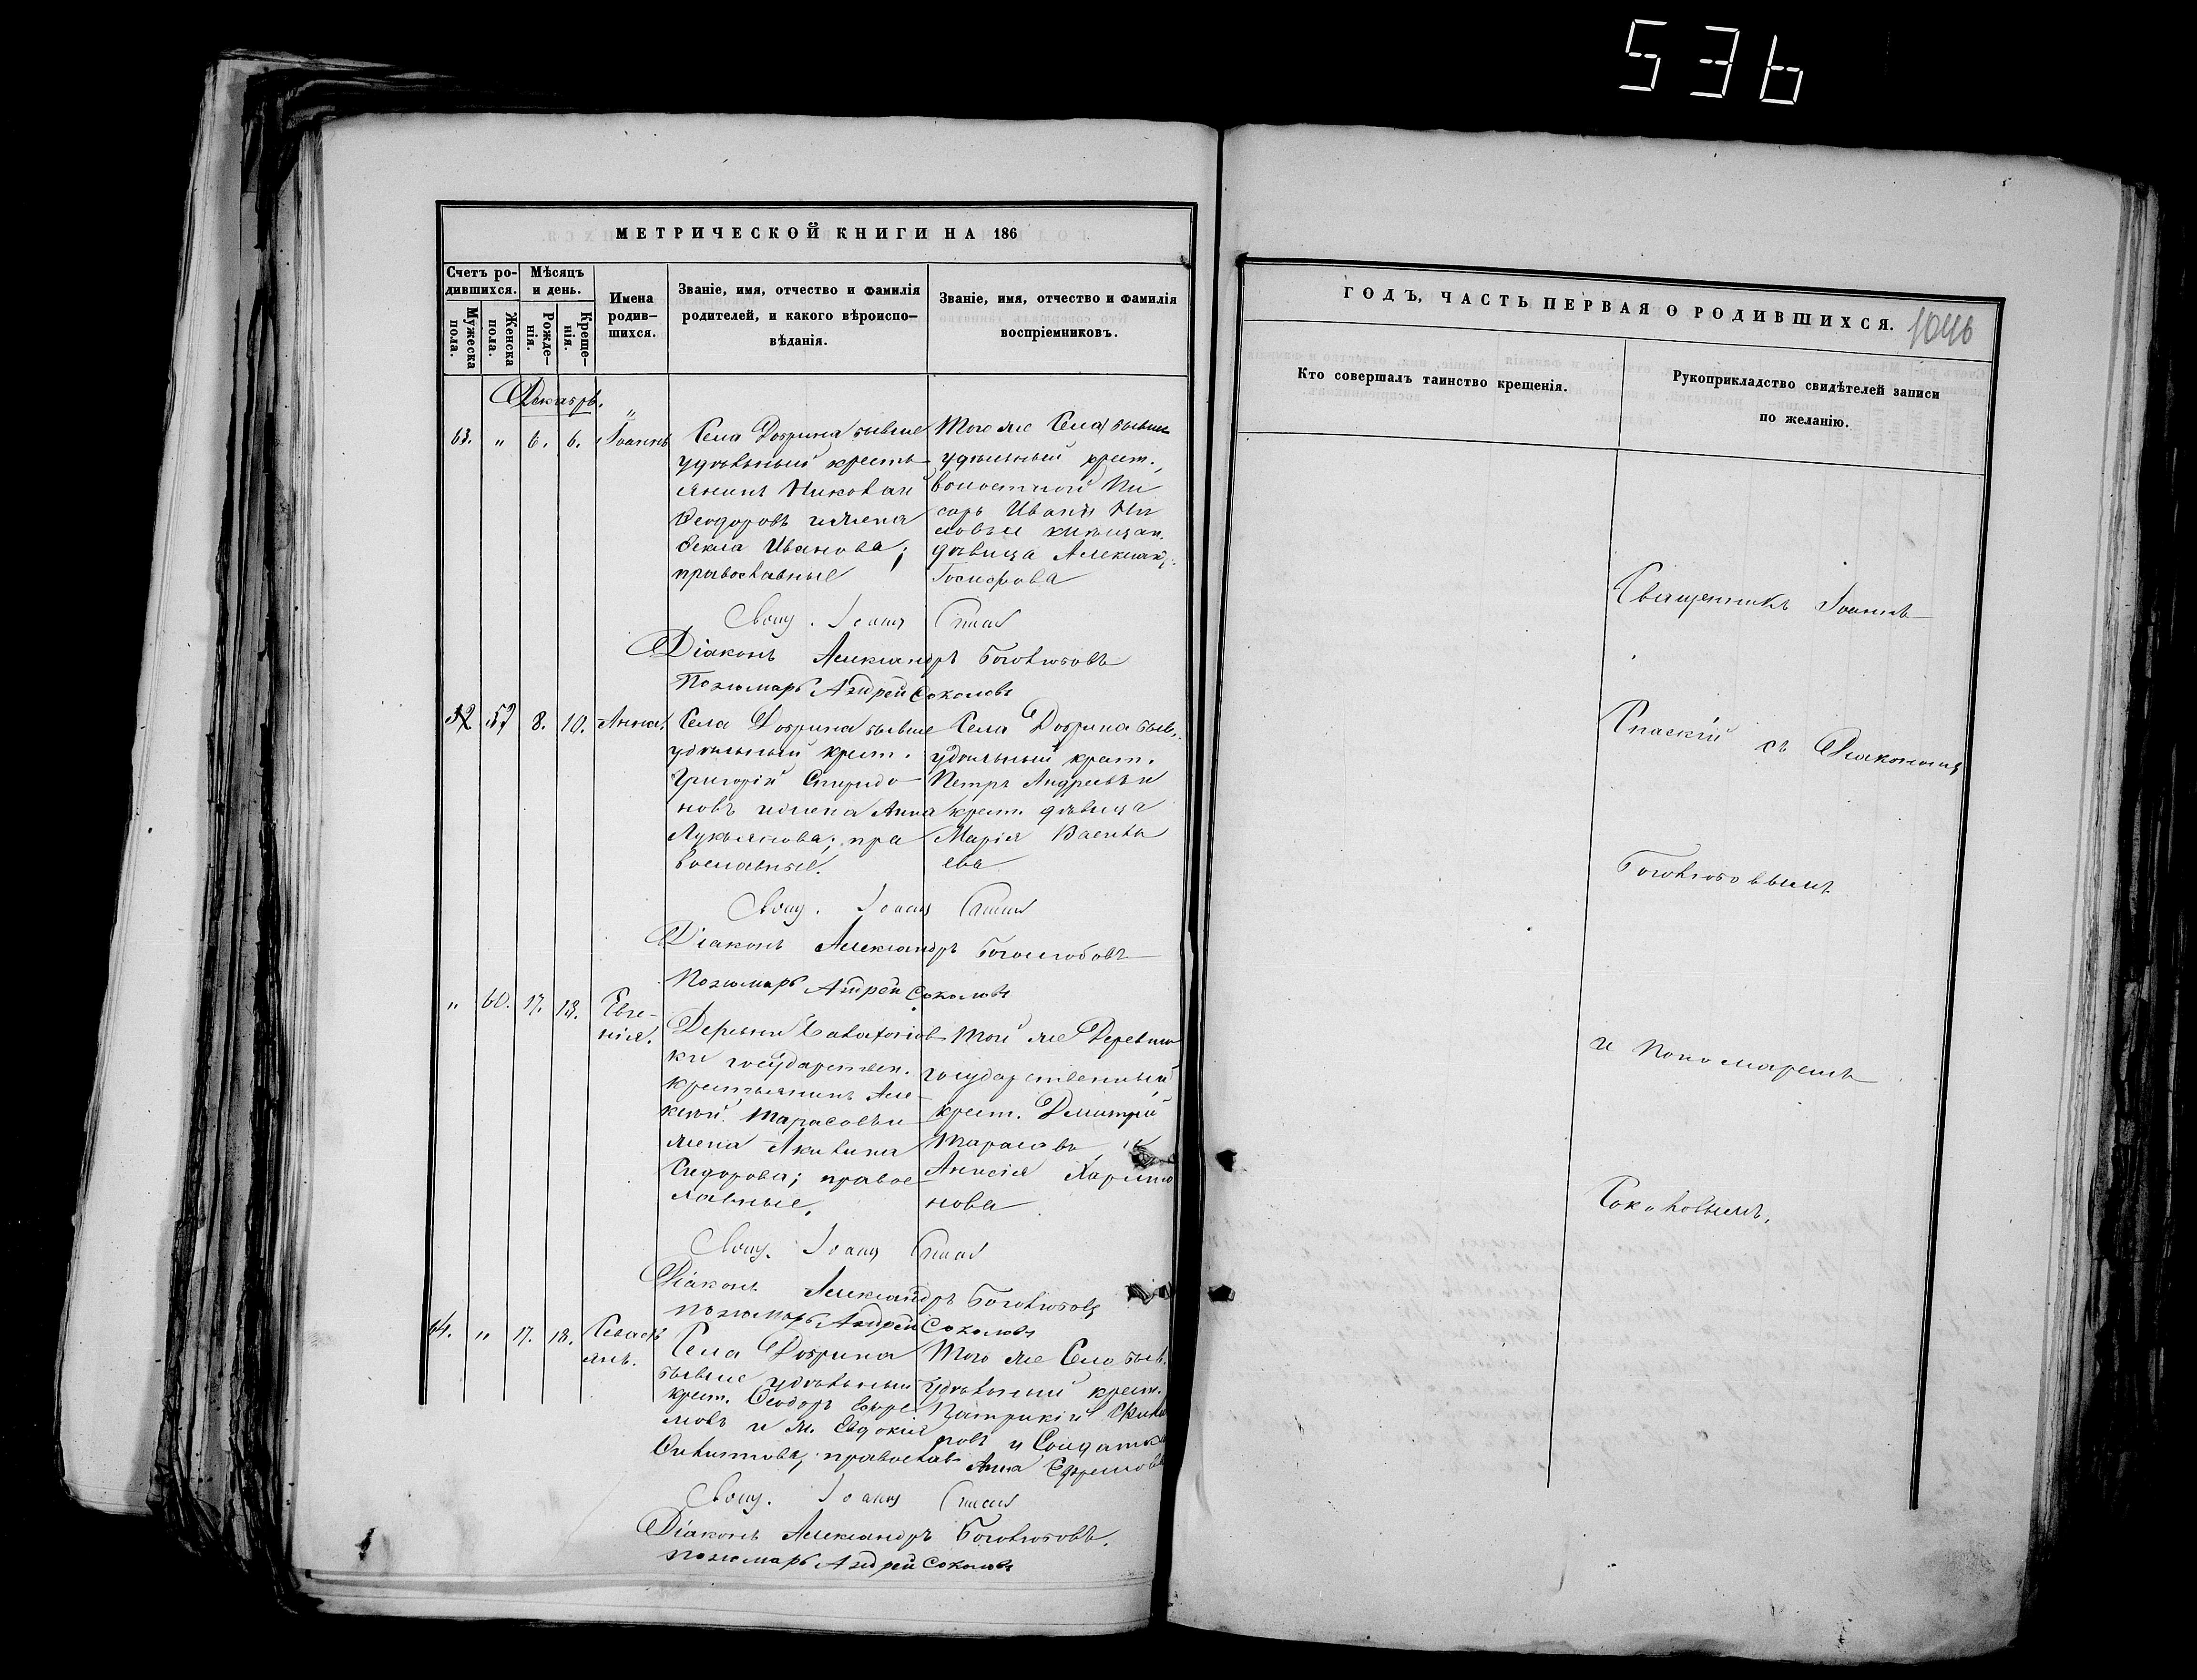 536
МЕТРИЧЕСКОЙ КНИГИ НА 186
Счетъ ро-
дившихся.
Мужеска
пола.
Женска
пола.
Мѣсяцъ
и день.
Рожде-
нія.
Креще-
нія.
Имена
родив-
шихся.
Званіе, имя, отчество и фамилія
родителей, и какого вѣроиспо-
вѣданія.
Званіе, имя, отчество и фамилія
воспріемниковъ.
Декабрь.
63. „ 6. 6. Іоаннъ
Села Добрина бывше
удѣльный кресть-
янинъ Николай
Ѳеодоровъ и жена
Ѳекла Иванова;
православные
Того же Села бывш
удѣльный крест.,
волостной Пи
сарь Иванъ
дѣвица Александ.
Свящ. Іоаннъ Спас
Діаконъ Александръ Боголюбовъ
Пономарь Андрей Соколовъ
8. 10. Анна.
Села Добрина бывше
удѣльный крест.
Григорій Спиридо-
новъ и жена Анна
Лукьянова; пра
вославные.
Села Добрина быв.
удѣльный крест.
Петръ Андреевъ и
крест. дѣвица
Марія Василь
ева
Свящ. Іоаннъ Спас
Діаконъ Александръ Боголюбовъ
Пономарь Андрей Соколовъ
„ 60. 17. 18. Евге-
нія.
Деревни
ки государствен.
крестьянинъ Але-
ксѣй Тарасовъ и
жена Акилина
Сидорова; правос-
лавные.
Той же Деревни
государственный
крест. Дмитрій
Тарасовъ и
Анисія Харито
нова
Свящ. Іоаннъ Спас
Діаконъ Александръ Боголюбовъ
пономарь Андрей Соколовъ
64. „ 17. 18. Севасть
янъ.
Села Добрина
бывше удѣльный
крест. Ѳеодоръ Ефре
мовъ и ж. Евдокія
православ
Того же Села быв.
удѣльный крест.
Патрикій
новъ и Солдатка
Анна Ефремова
Свящ. Іоаннъ Спас
Діаконъ Александръ Боголюбовъ.
пономарь Андрей Соколовъ
ГОДЪ, ЧАСТЬ ПЕРВАЯ О РОДИВШИХСЯ.
1046
Кто совершалъ таинство крещенія.
Рукоприкладство свидѣтелей записи
по желанію.
Священникъ Іоаннъ
Спаскій съ Діакономъ
Боголюбовымъ
и Пономаремъ
Соколовымъ.